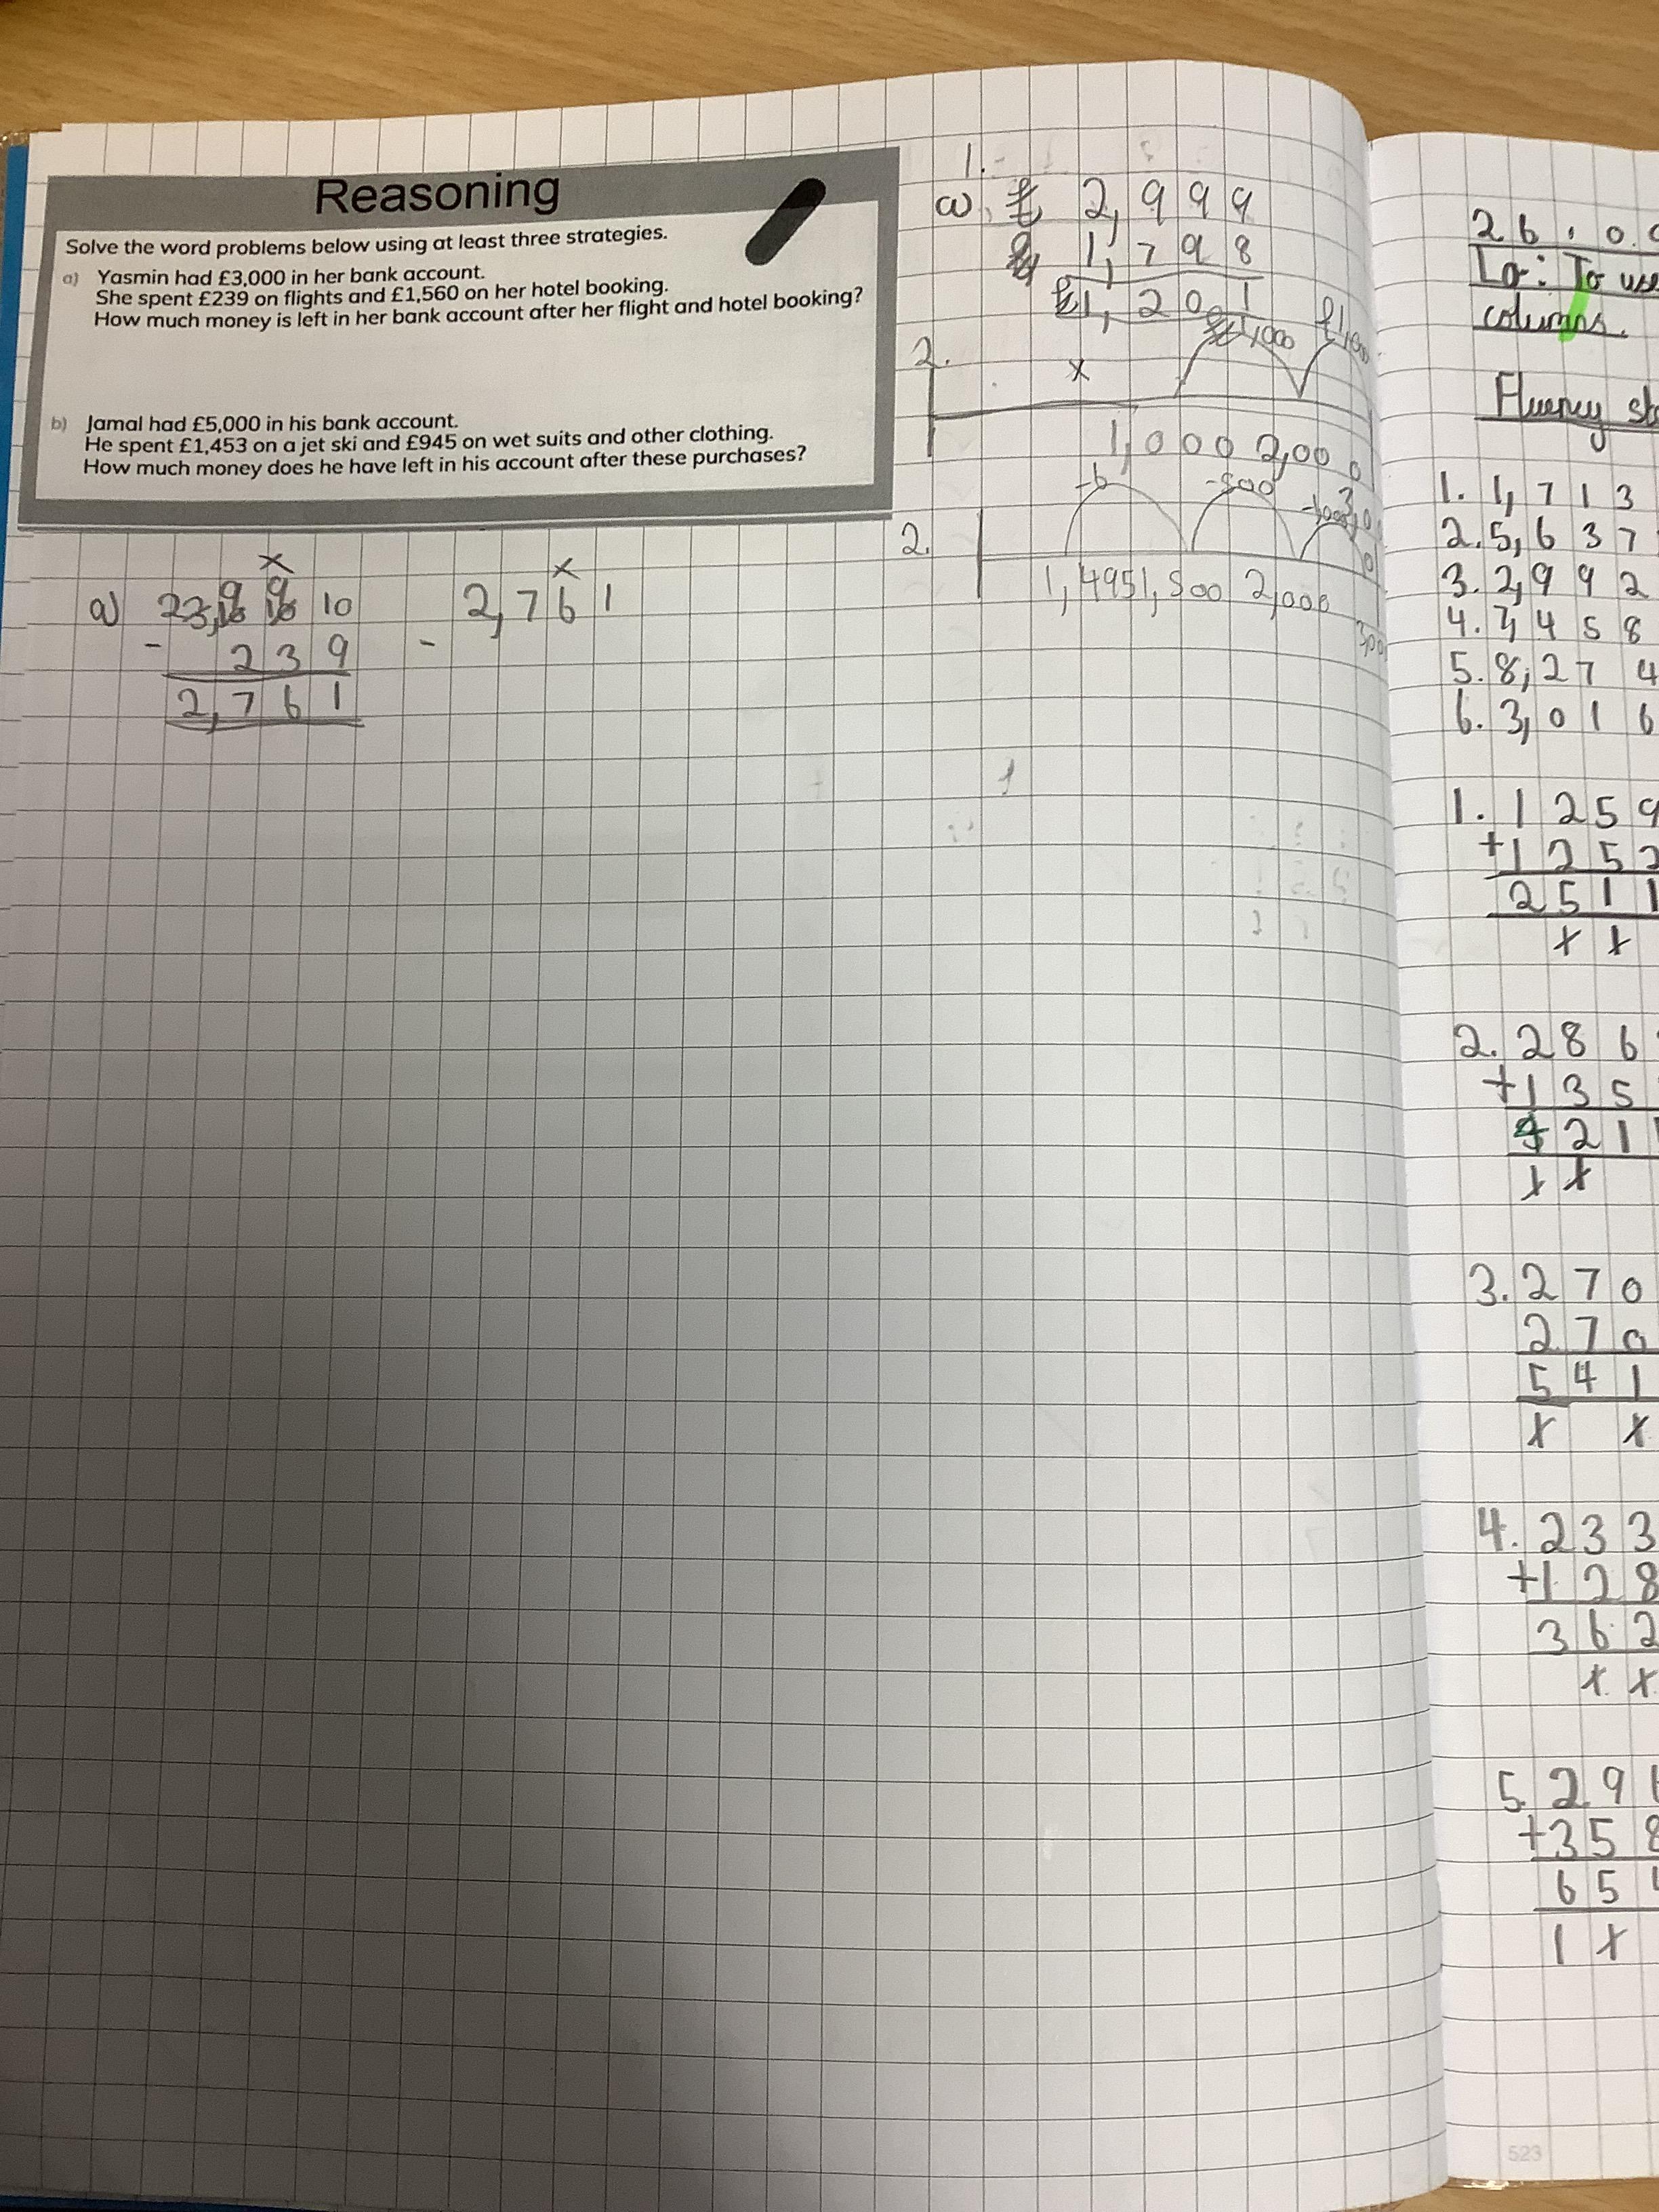 Reasoning
Solve the word problems below using at least three strategies.
a) Yasmin had £3,000 in her bank account.
She spent £239 on flights and £1,560 on her hotel booking.
How much money is left in her bank account after her flight and hotel booking?
b) Jamal had £5,000 in his bank account.
He spent £1,453 on a jet ski and £945 on wet suits and other clothing.
How much money does he have left in his account after these purchases?
a) 10
- 239
2,761
2,761
-
1.
a) £ 2,999
1,798
£1,201
2.
x
£1,000
1,000 2,000
2.
-500
1,495 1,500 2,000
26.0
Lo: To use
columns.
Fluency
1. 1,713
2. 5,637
3. 2,992
4. 7,458
5. 8,274
6. 3,016
1. 1259
+1252
2511
2. 286
+135
421
3. 270
270
541
4. 233
+128
362
5. 29
+358
65
523